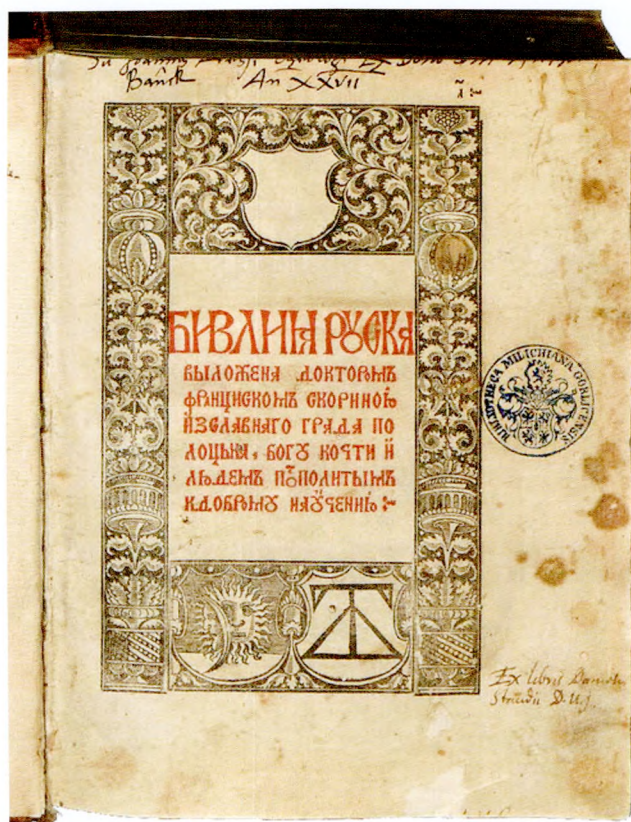 Bańck An XXVII
БИВЛИꙖ РУСКА
ВЫЛОЖЕНА ДОКТОРОМЪ
ФРАНЦИСКОМЪ СКОРИНОЮ
ИЗСЛАВНАГО ГРАДА ПО
ЛОЦЬКА, БОГУ КОЧТИ И
ЛЮДЕМЪ ПОСПОЛИТЫМЪ
КДОБРОМУ НАУЧЕНИЮ :~
BIBLIOTHECA MILICHIANA GORLICENSIS
Ex libris
D. U. J.